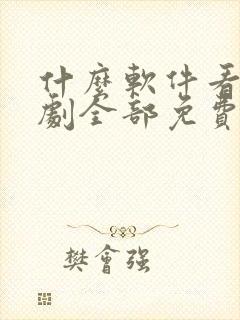 什麼軟件看
劇全部免費
樊會强